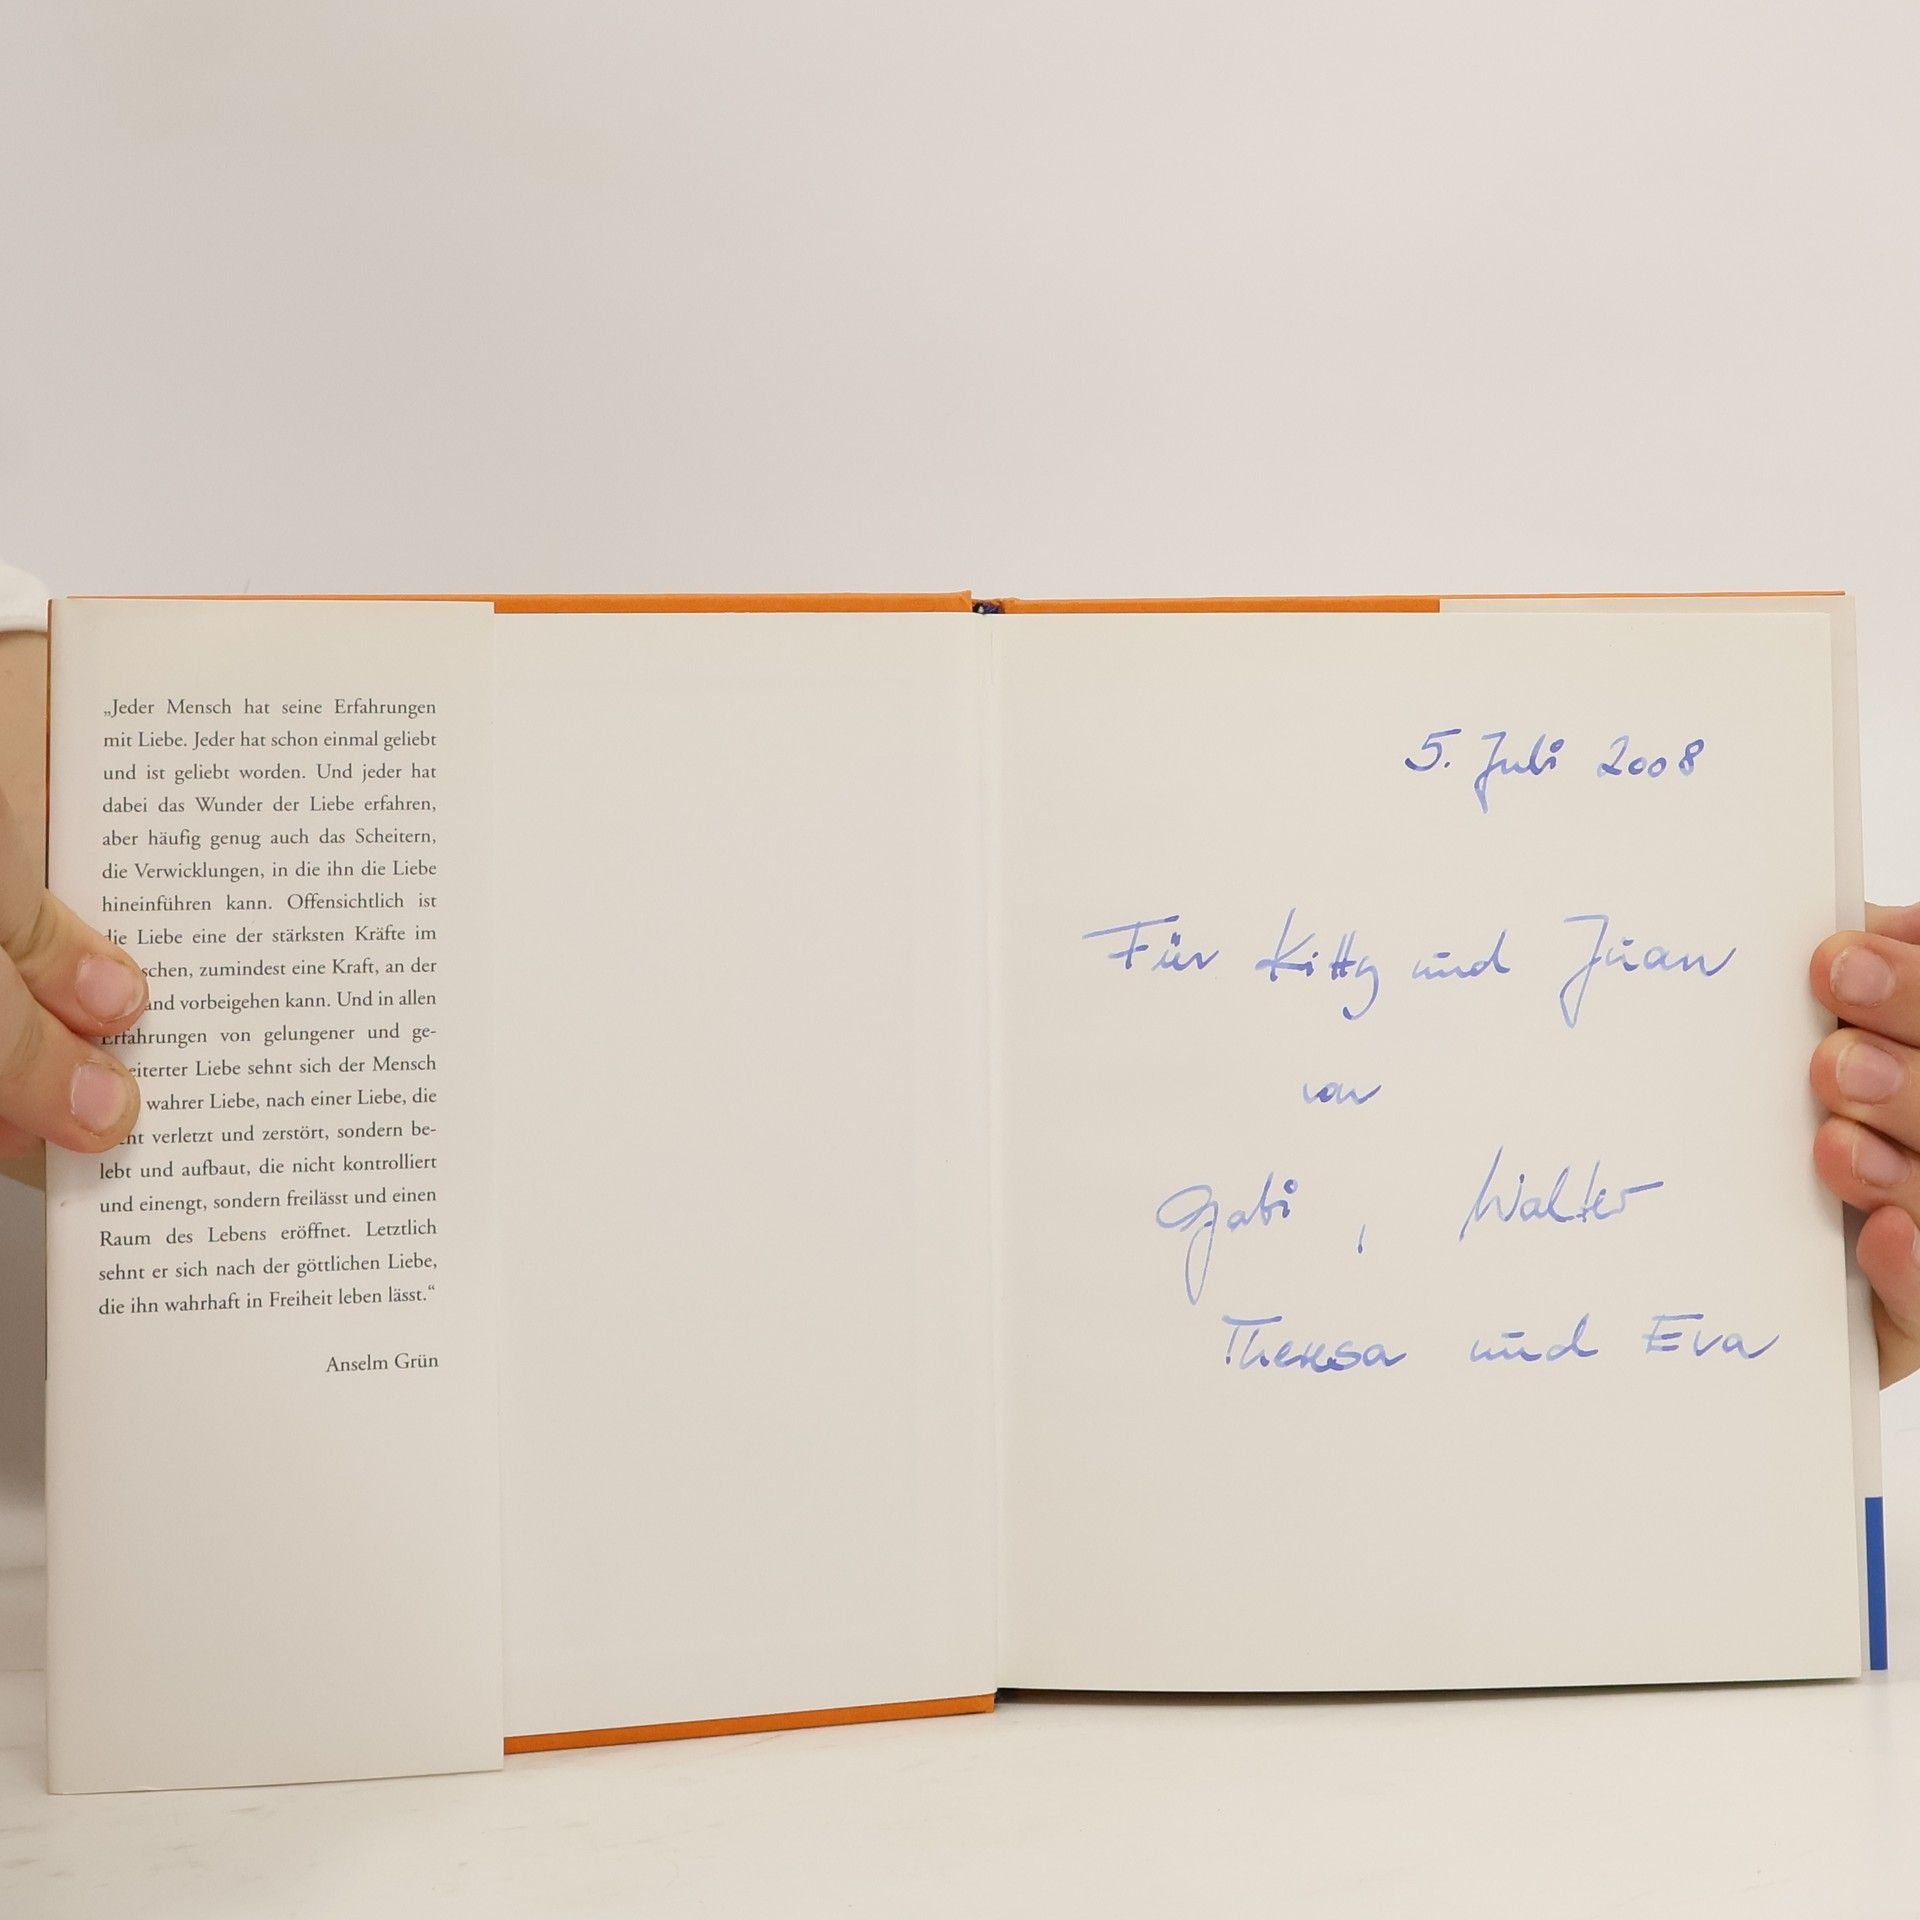 „Jeder Mensch hat seine Erfahrungen
mit Liebe. Jeder hat schon einmal geliebt
und ist geliebt worden. Und jeder hat
dabei das Wunder der Liebe erfahren,
aber häufig genug auch das Scheitern,
die Verwicklungen, in die ihn die Liebe
hineinführen kann. Offensichtlich ist
die Liebe eine der stärksten Kräfte im
schen, zumindest eine Kraft, an der
and vorbeigehen kann. Und in allen
Erfahrungen von gelungener und ge-
eiterter Liebe sehnt sich der Mensch
wahrer Liebe, nach einer Liebe, die
nt verletzt und zerstört, sondern be-
lebt und aufbaut, die nicht kontrolliert
und einengt, sondern freilässt und einen
Raum des Lebens eröffnet. Letztlich
sehnt er sich nach der göttlichen Liebe,
die ihn wahrhaft in Freiheit leben lässt.“
Anselm Grün
5. Juli 2008
Für Kitty und Juan
von
Gabi, Walter
Theresa und Eva